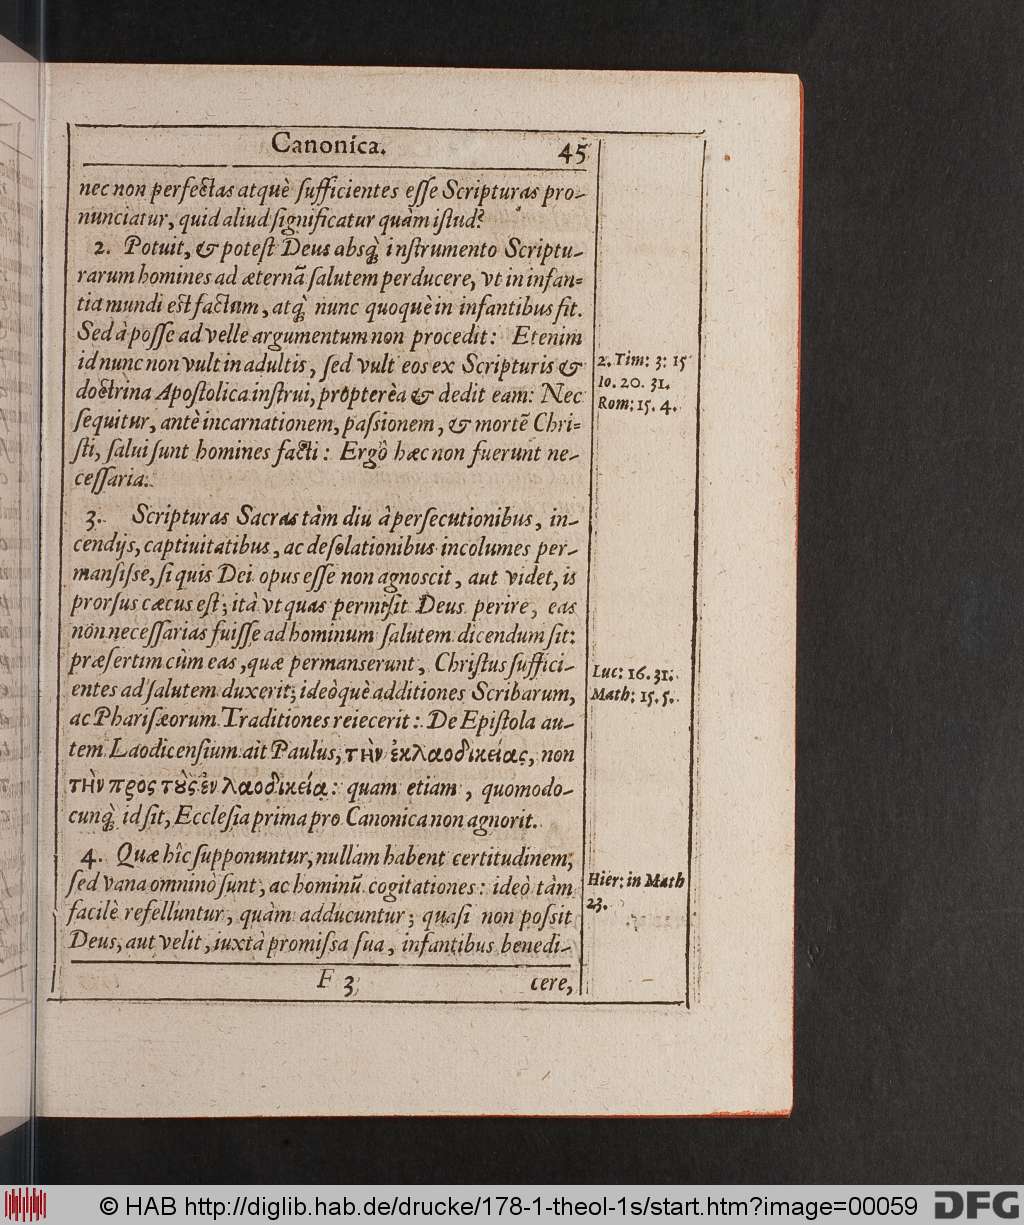 Canonica. 45
nec non perfectas atquè ſufficientes eſſe Scripturas pro-
nunciatur, quid aliud ſignificatur quàm iſtud?
2. Potuit, & poteſt Deus absq́; inſtrumento Scriptu-
rarum homines ad æternã ſalutem perducere, vt in infan=
tia mundi eſt factum, atq́; nunc quoquè in infantibus fit.
Sed à poſſe ad velle argumentum non procedit: Etenim
id nunc non vult in adultis, ſed vult eos ex Scripturis &
doctrina Apoſtolica inſtrui, proptereà & dedit eam: Nec
ſequitur, antè incarnationem, paſsionem, & mortẽ Chri=
ſti, ſalui ſunt homines facti: Ergò hæc non fuerunt ne-
ceſſaria.
3. Scripturas Sacras tàm diu à perſecutionibus, in-
cendijs, captiuitatibus, ac deſolationibus incolumes per-
manſiſse, ſi quis Dei opus eſſe non agnoscit, aut videt, is
prorſus cæcus eſt; ità vt quas permiſit Deus perire, eas
non neceſſarias fuiſſe ad hominum ſalutem dicendum ſit:
præſertim cùm eas, quæ permanserunt, Chriſtus ſuffici-
entes ad ſalutem duxerit; ideòquè additiones Scribarum,
ac Phariſæorum Traditiones reiecerit: De Epiſtola au-
tem Laodicenſium ait Paulus, τὴν ἐκλαοδικείας, non
τὴν πρὸς τοὺς ἐν λαοδικείᾳ: quam etiam, quomodo-
cunq́; id ſit, Eccleſia prima pro Canonica non agnorit.
4. Quæ hîc ſupponuntur, nullam habent certitudinem,
ſed vana omninò ſunt, ac hominũ cogitationes: ideò tàm
facilè refelluntur, quàm adducuntur; quaſi non poſsit
Deus, aut velit, iuxtà promiſsa ſua, infantibus benedi-
F 3 cere,
2. Tim: 3: 15
Io. 20. 31.
Rom: 15. 4.
Luc: 16. 31.
Math: 15. 5.
Hier: in Math
23.
© HAB http://diglib.hab.de/drucke/178-1-theol-1s/start.htm?image=00059
DFG